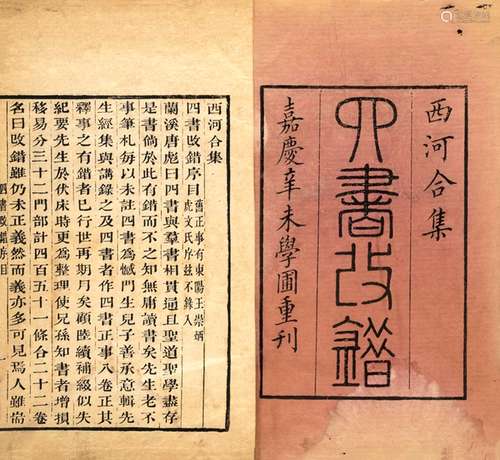 西河合集
四書改錯
嘉慶辛未學圃重刊
西河合集
四書改錯序目 舊正事有東陽王崇炳
虎文氏序茲不錄入
蘭溪唐彪曰四書與羣書相貫通且聖道聖學盡存
是書倘於此有錯而不之知無庸讀書矣先生老不
事筆札每以未註四書爲憾門生兒子善承意輯先
生經集與講錄之及四書者作四書正事八卷正其
釋事之有錯者已行世再期月矣顧陸續補綴似失
紀要先生於伏床時更爲整理使兒孫知書者增損
移易分三十二門部計四百五十一條合二十二卷
名曰改錯雖仍未正義然而義亦多可見焉人雖耑